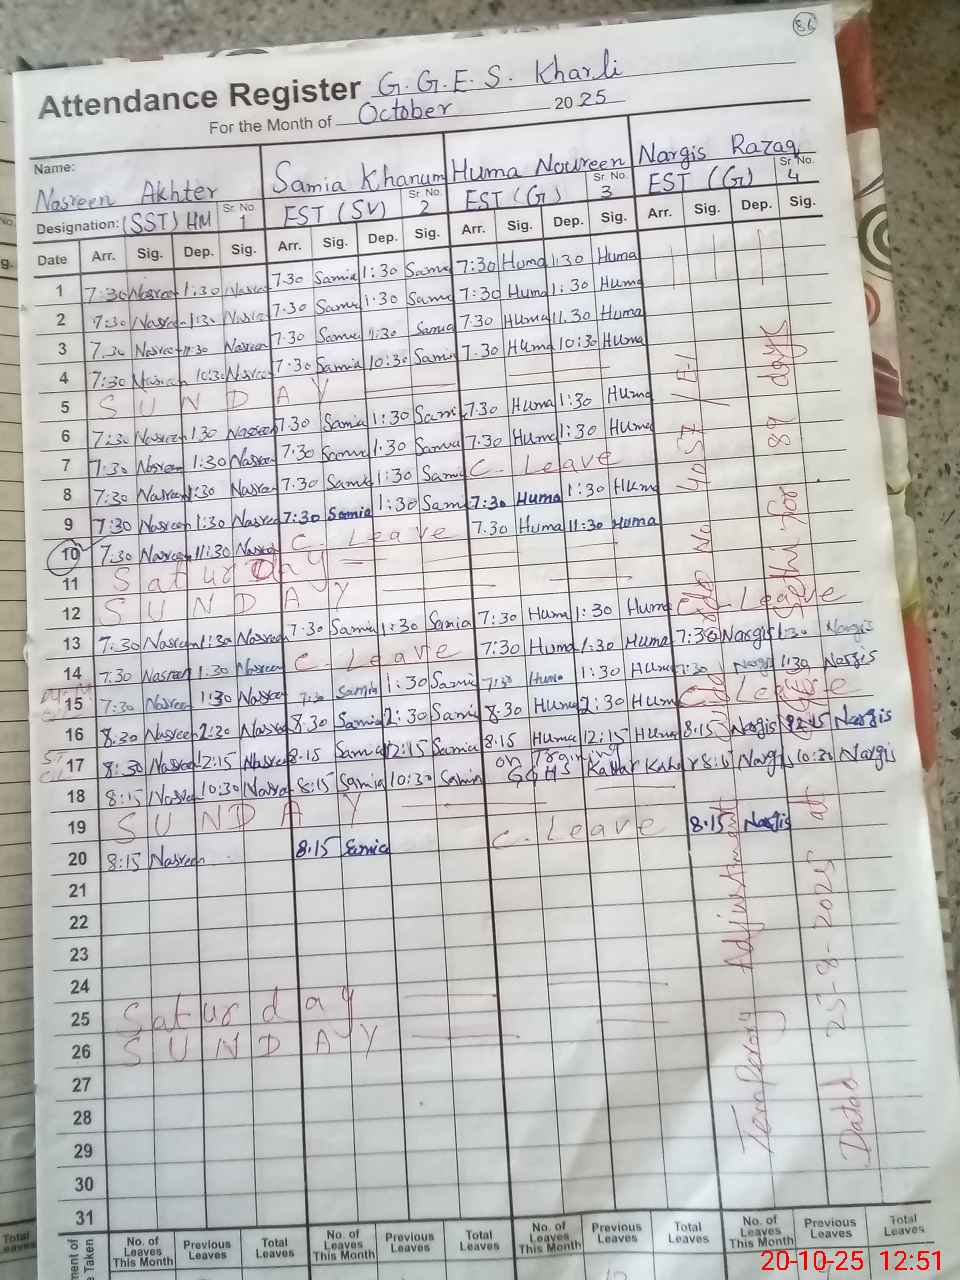 86
Attendance Register G.G.E.S. Kharli
For the Month of October 2025
Name: Nasreen Akhter Samia Khanum Huma Noureen Nargis Razaq
Designation: (SST) HM Sr. No. 1 EST (SV) Sr. No. 2 EST (G) Sr. No. 3 EST (G) Sr. No. 4
Date Arr. Sig. Dep. Sig. Arr. Sig. Dep. Sig. Arr. Sig. Dep. Sig. Arr. Sig. Dep. Sig.
1 7:30 Nasreen 1:30 Nasreen 7.30 Samia 1:30 Samia 7:30 Huma 1:30 Huma
2 7:30 Nasreen 1:30 Nasreen 7.30 Samia 1:30 Samia 7:30 Huma 1:30 Huma
3 7.30 Nasreen 11:30 Nasreen 7.30 Samia 11:30 Samia 7.30 Huma 11.30 Huma
4 7:30 Nasreen 10:30 Nasreen 7.30 Samia 10:30 Samia 7.30 Huma 10:30 Huma
5 SUNDAY
6 7:30 Nasreen 1:30 Nasreen 7.30 Samia 1:30 Samia 7.30 Huma 1:30 Huma
7 7:30 Nasreen 1:30 Nasreen 7.30 Samia 1.30 Samia 7:30 Huma 1:30 Huma
8 7:30 Nasreen 1:30 Nasreen 7.30 Samia 1:30 Samia C. Leave
9 7:30 Nasreen 1:30 Nasreen 7:30 Samia 1:30 Samia 7:30 Huma 1:30 Huma
10 7:30 Nasreen 11:30 Nasreen C. Leave 7.30 Huma 11:30 Huma
11 Saturday
12 SUNDAY
13 7:30 Nasreen 1:30 Nasreen 7.30 Samia 1:30 Samia 7:30 Huma 1:30 Huma C. Leave
14 7:30 Nasreen 1:30 Nasreen C. Leave 7:30 Huma 1:30 Huma 7:30 Nargis 1:30 Nargis
15 7:30 Nasreen 1:30 Nasreen 7:30 Samia 1:30 Samia 7:30 Huma 1:30 Huma 7:30 Nargis 1:30 Nargis
16 8:30 Nasreen 2:30 Nasreen 8:30 Samia 2:30 Samia 8:30 Huma 2:30 Huma Leave
17 8:30 Nasreen 12:15 Nasreen 8.15 Samia 12:15 Samia 8:15 Huma 12:15 Huma 8:15 Nargis 12:15 Nargis
18 8:15 Nasreen 10:30 Nasreen 8:15 Samia 10:30 Samia on GGHS 8:15 Nargis 10:30 Nargis
19 SUNDAY
20 8:15 Nasreen 8.15 Samia C. Leave 8.15 Nargis
21
22
23
24
25 Saturday
26 SUNDAY
27
28
29
30
31
Temperory Adjustment
Dated 25-8-2025 at
for 89 days
No. of Leaves This Month Previous Leaves Total Leaves No. of Leaves This Month Previous Leaves Total Leaves No. of Leaves This Month Previous Leaves Total Leaves No. of Leaves This Month Previous Leaves Total Leaves
20-10-25 12:51